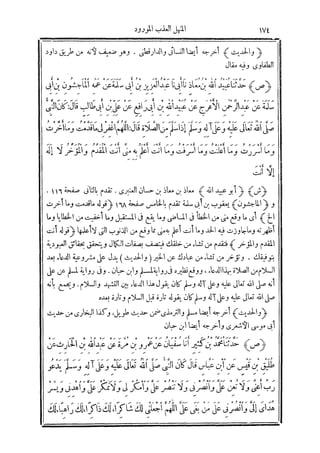 ١٧٤ المنهل العذب المورود
﴿والحديث﴾ أخرجه أيضا النسائى والدارقطنى. وهو ضعيف لأنه من طريق داود
الطفاوى وفيه مقال
﴿ص﴾ حَدَّثَنَا عُبَيْدُ اللهِ بْنُ مُعَاذٍ نَا أَبِى نَا عَبْدُ الْعَزِيزِ بْنُ أَبِى سَلَمَةَ عَنْ عَمِّهِ الْمَاجِشُونِ بْنِ أَبِى
سَلَمَةَ عَنْ عَبْدِ الرَّحْمَنِ الْأَعْرَجِ عَنْ عُبَيْدِ اللهِ بْنِ أَبِى رَافِعٍ عَنْ عَلِىِّ بْنِ أَبِى طَالِبٍ قَالَ كَانَ النَّبِىُّ
صَلَّى اللهُ تَعَالَى عَلَيْهِ وَعَلَى آلِهِ وَسَلَّمَ إِذَا سَلَّمَ مِنَ الصَّلَاةِ قَالَ اللَّهُمَّ اغْفِرْ لِى مَا قَدَّمْتُ وَمَا أَخَّرْتُ
وَمَا أَسْرَرْتُ وَمَا أَعْلَنْتُ وَمَا أَسْرَفْتُ وَمَا أَنْتَ أَعْلَمُ بِهِ مِنِّى أَنْتَ الْمُقَدِّمُ وَالْمُؤَخِّرُ لَا إِلَهَ
إِلَّا أَنْتَ
﴿ش﴾ ﴿أبو عبيد الله﴾ معاذ بن معاذ بن حسان العنبرى. تقدم بالثانى صفحة ١١٦.
و﴿الماجشون﴾ يعقوب بن أبى سلمة تقدم بالخامس صفحة ١٦٨ ﴿قوله ما قدمت وما أخرت
الخ﴾ أى ما وقع منى من الخطأ فى الماضى وما يقع فى المستقبل وما أخفيت من الخطايا وما
أظهرته وما جاوزت فيه الحد وما أنت أعلم به منى مما وقع من الذنوب التى لا أعلمها ﴿قوله أنت
المقدم والمؤخر﴾ فتقدم من تشاء من خلقك فيتصف بصفات الكمال ويتحقق بحقائق العبودية
بتوفيقك. وتؤخر من تشاء من عبادك عن الخير ﴿والحديث﴾ يدل على مشروعية الدعاء بعد
السلام من الصلاة بهذا الدعاء. ووقع نظيره فى رواية لمسلم وابن حبان. وفى رواية لمسلم عن على
أنه صلى الله تعالى عليه وعلى آله وسلم كان يقول هذا الدعاء بين التشهد والسلام. ويجمع بأنه
صلى الله تعالى عليه وعلى آله وسلم كان يقوله تارة قبل السلام وتارة بعده
﴿والحديث﴾ أخرجه أيضا مسلم والترمذى ضمن حديث طويل. وكذا البخارى من حديث
أبى موسى الأشعرى وأخرجه أيضا ابن حبان
﴿ص﴾ حَدَّثَنَا مُحَمَّدُ بْنُ كَثِيرٍ أَنَا سُفْيَانُ عَنْ عَمْرِو بْنِ مُرَّةَ عَنْ عَبْدِ اللهِ بْنِ الْحَارِثِ عَنْ
طُلَيْقِ بْنِ قَيْسٍ عَنِ ابْنِ عَبَّاسٍ قَالَ كَانَ النَّبِىُّ صَلَّى اللهُ تَعَالَى عَلَيْهِ وَعَلَى آلِهِ وَسَلَّمَ يَدْعُو
رَبِّ أَعِنِّى وَلَا تُعِنْ عَلَىَّ وَانْصُرْنِى وَلَا تَنْصُرْ عَلَىَّ وَامْكُرْ لِى وَلَا تَمْكُرْ عَلَىَّ وَاهْدِنِى وَيَسِّرْ
هُدَاىَ إِلَىَّ وَانْصُرْنِى عَلَى مَنْ بَغَى عَلَىَّ اللَّهُمَّ اجْعَلْنِى لَكَ شَاكِرًا لَكَ ذَاكِرًا لَكَ رَاهِبًا لَكَ